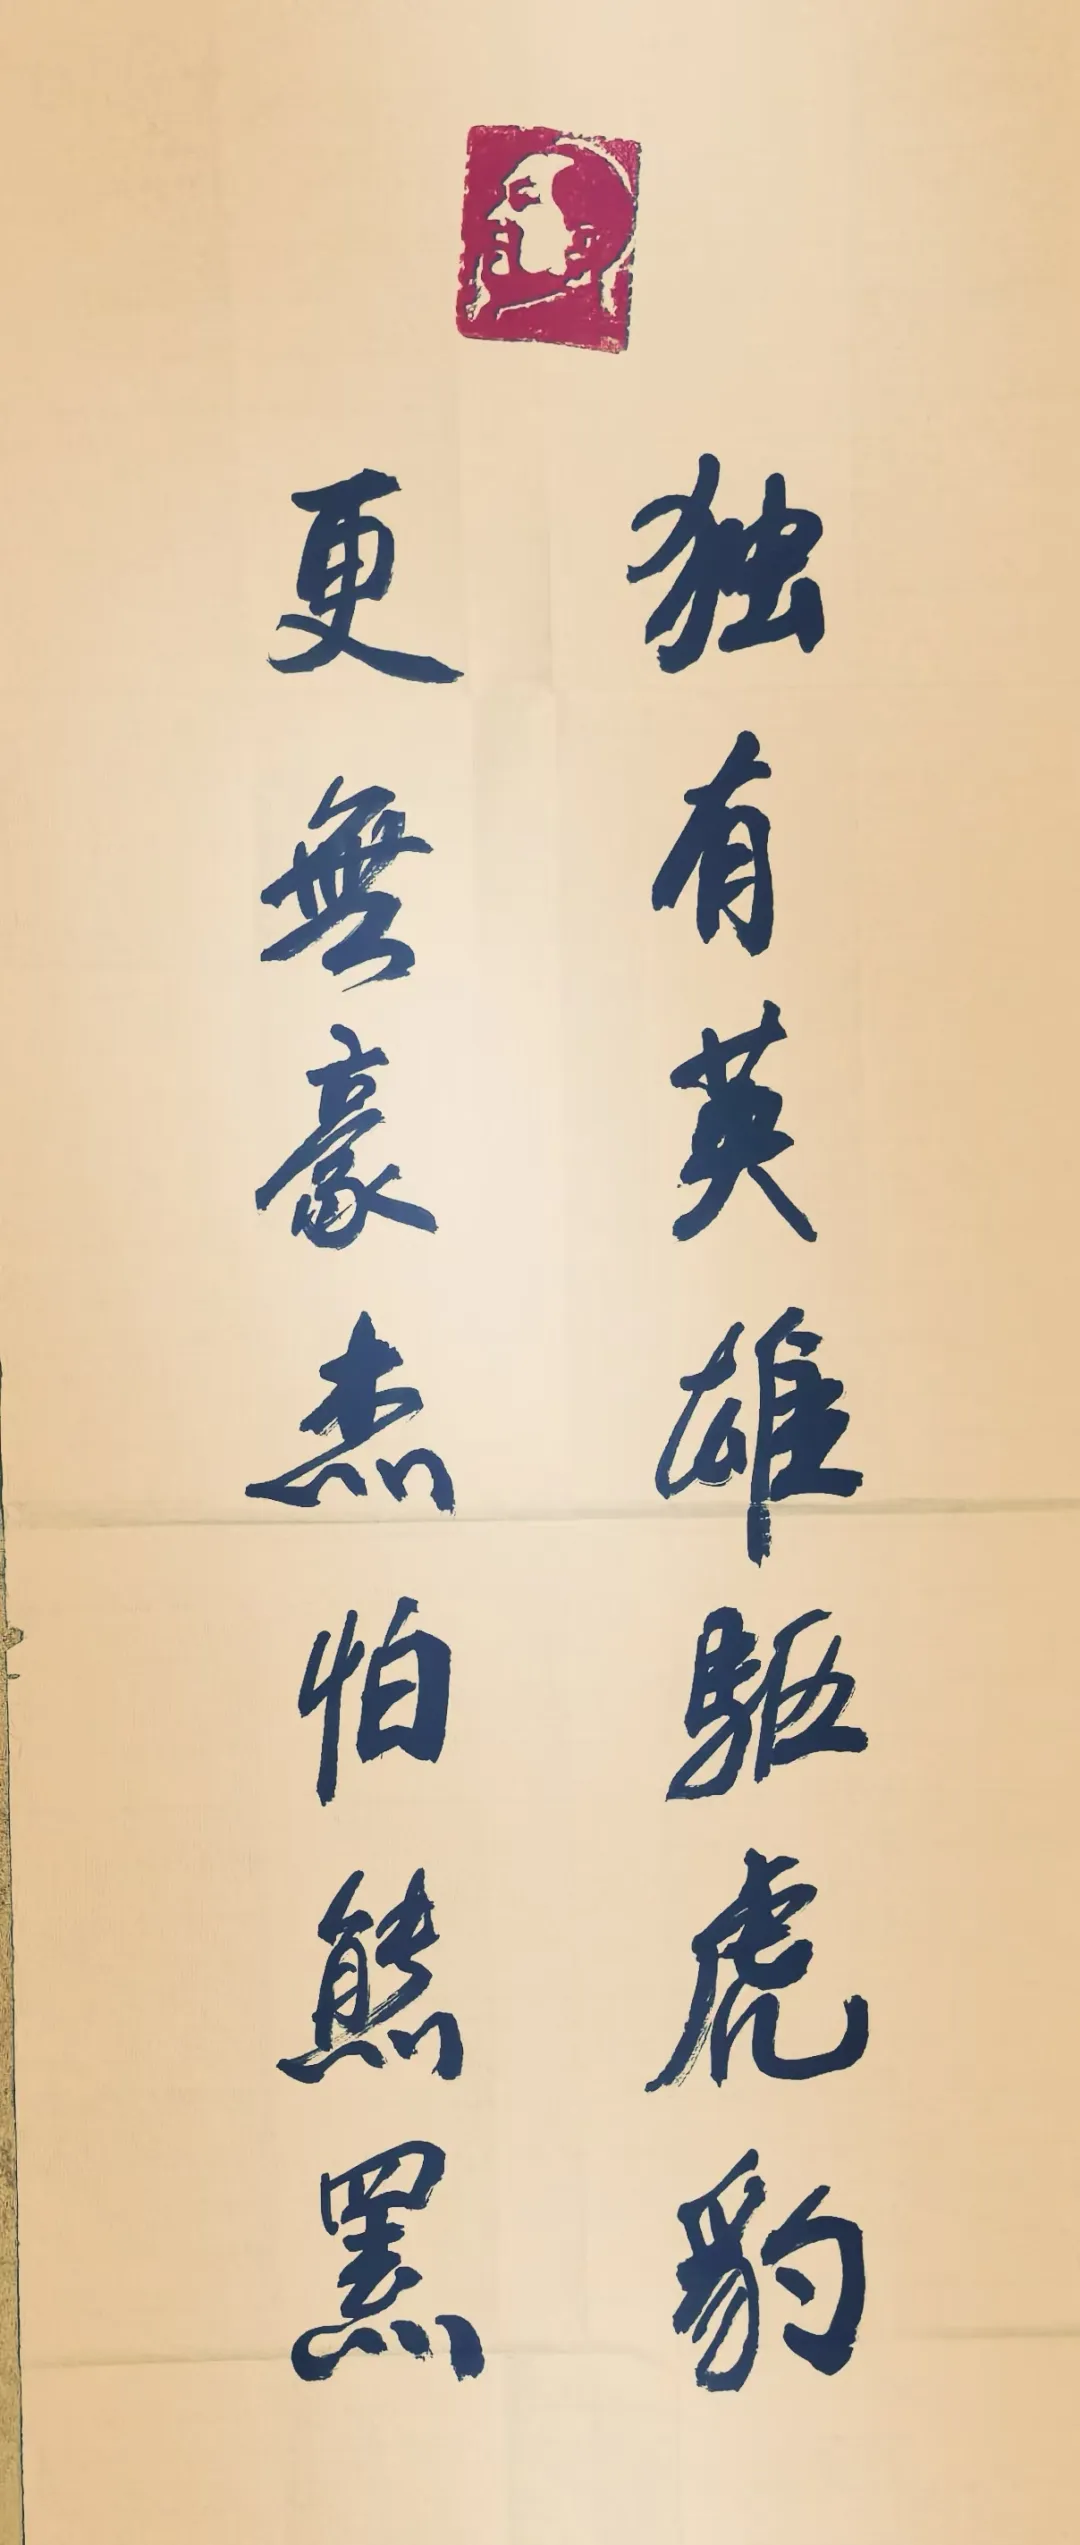 独有英雄驱虎豹
更無豪杰怕熊罴